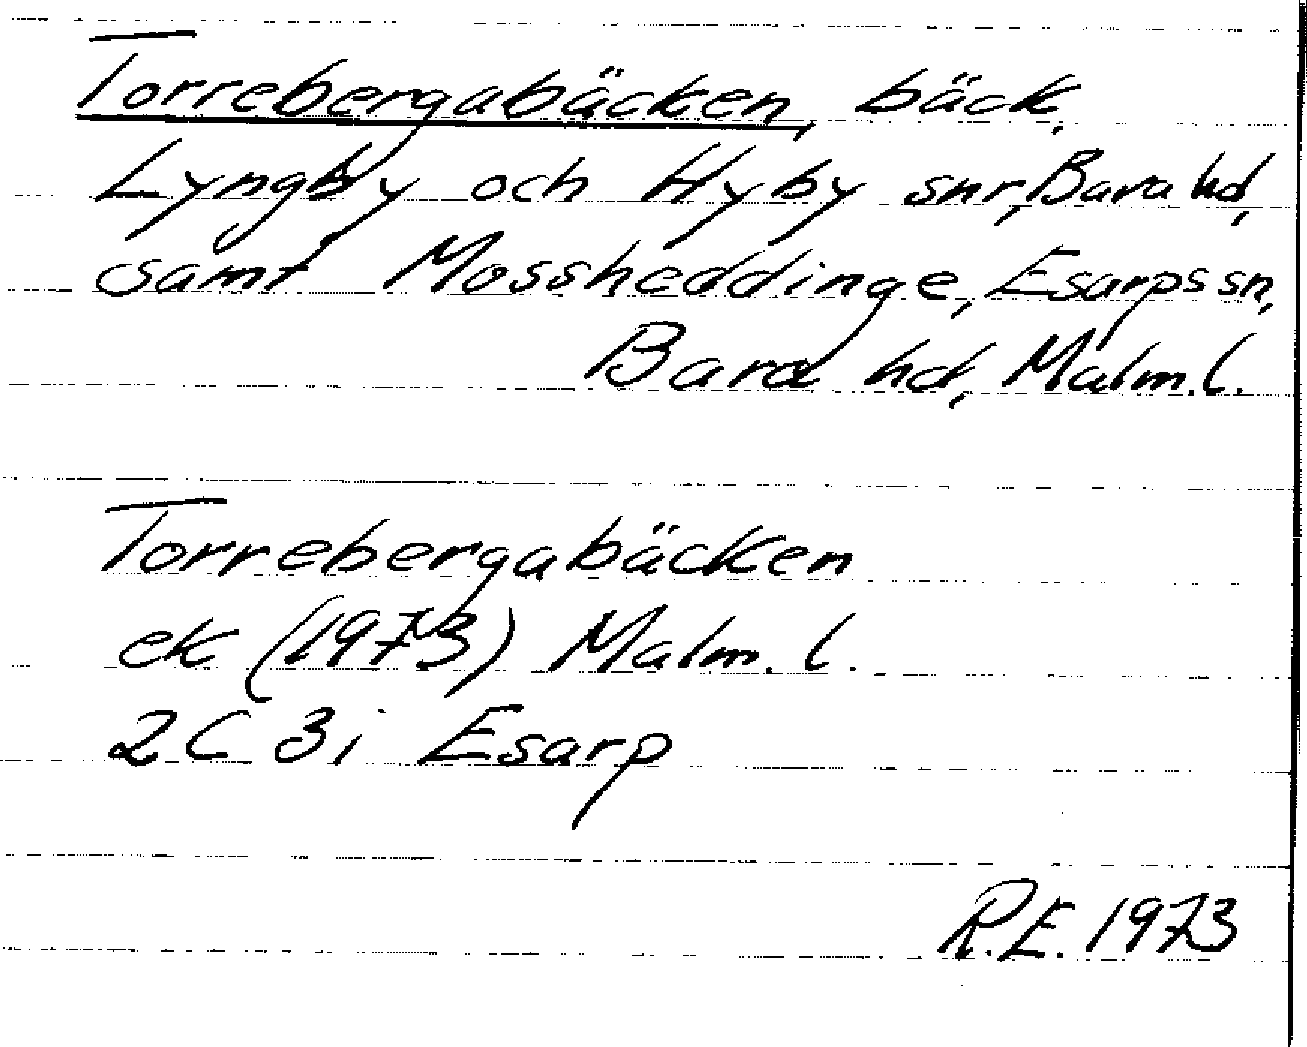 Torrebergabäcken, bäck,
Lyngby och Hyby snr, Bara hd,
samt Mossheddinge, Esarps sn,
Bara hd, Malm. l.
Torrebergabäcken
ek (1973) Malm. l.
2C 3i Esarp
R.E. 1973